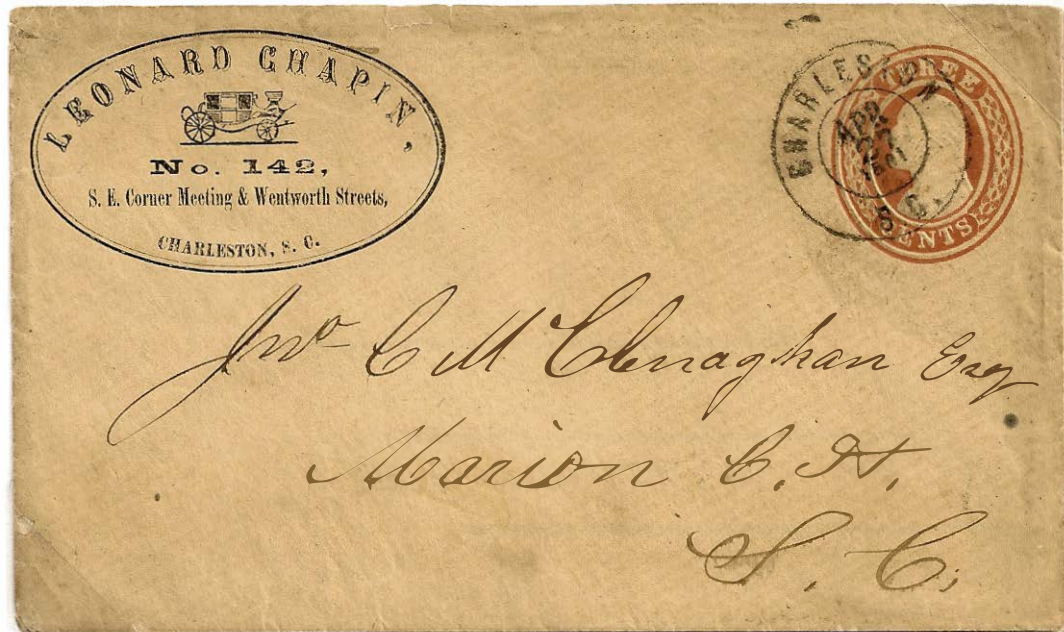 LEONARD CHAPIN,
No. 142,
S. E. Corner Meeting & Wentworth Streets,
CHARLESTON, S. C.
CHARLESTON
APR
S. C.
THREE
CENTS
Jno C McClenaghan Esq
Marion C. H.
S. C.